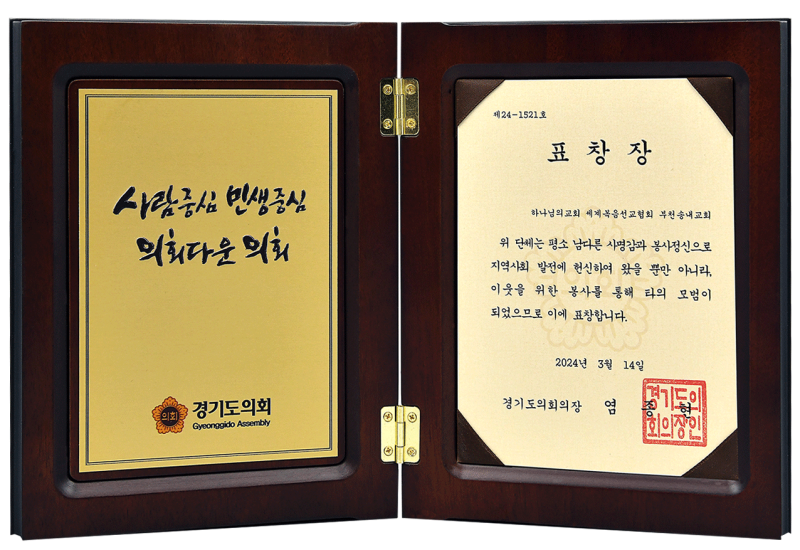 사람중심 민생중심
의회다운 의회
의회
경기도의회
Gyeonggido Assembly
제24-1521호
표 창 장
하나님의교회 세계복음선교협회 부천송내교회
위 단체는 평소 남다른 사명감과 봉사정신으로
지역사회 발전에 헌신하여 왔을 뿐만 아니라,
이웃을 위한 봉사를 통해 타의 모범이
되었으므로 이에 표창합니다.
2024년 3월 14일
경기도의회의장 염 종 현
경기도의
회의장인